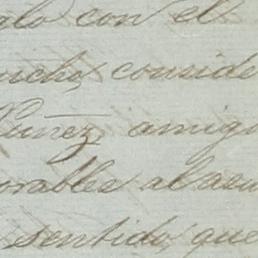 alo con el
mucho, conside
Nuñez, amig
orables al asu
sentido, que